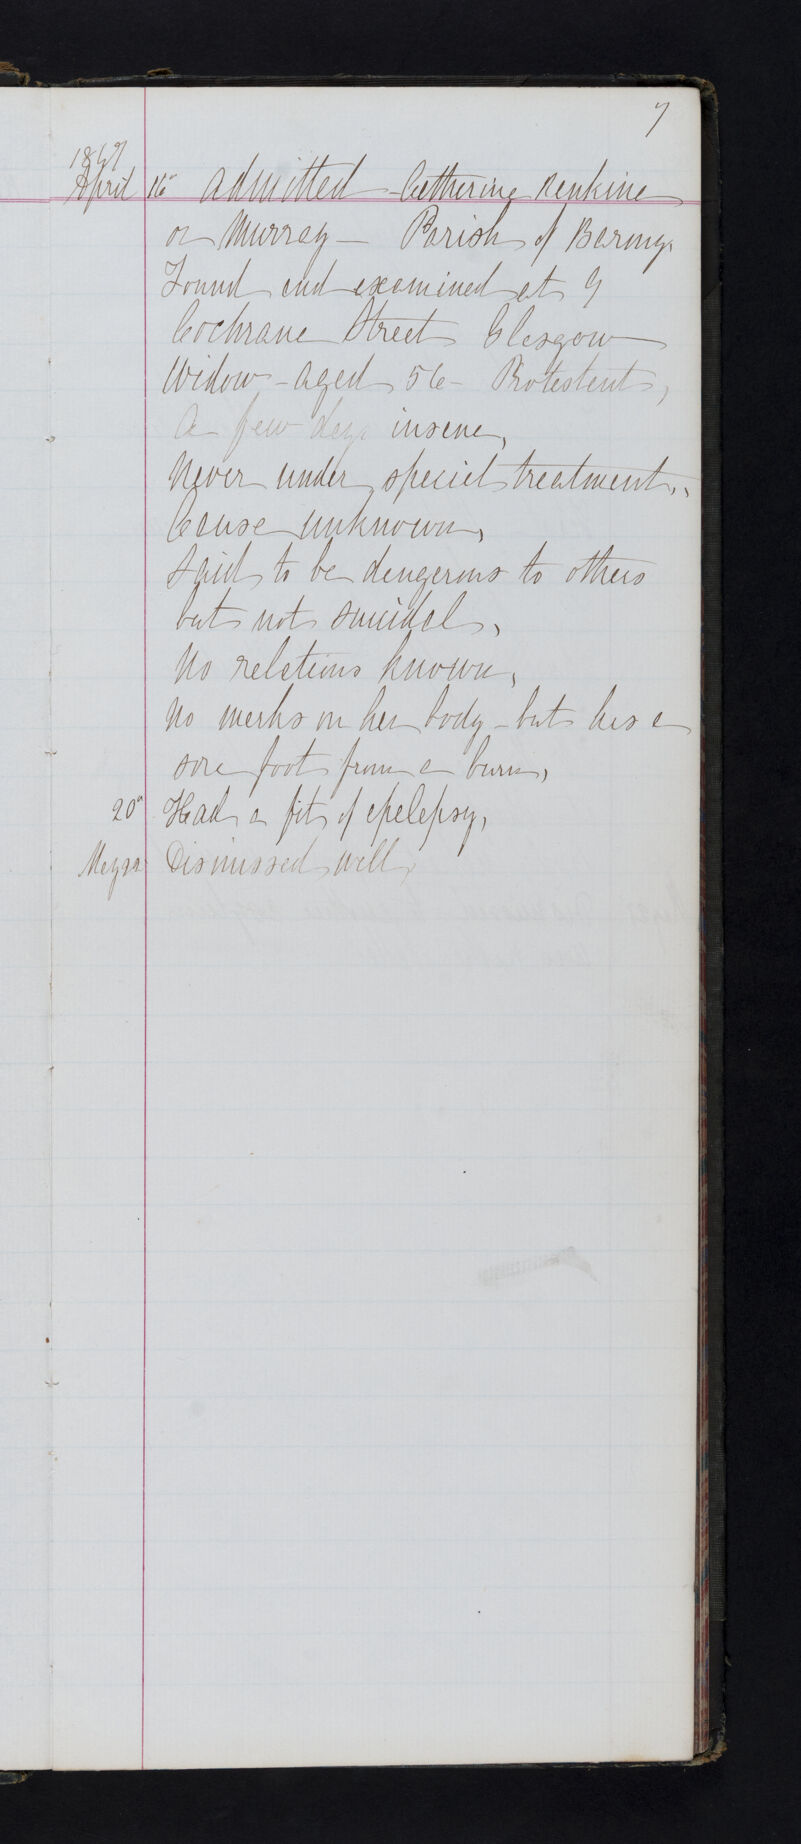 7
1867
April 16th Admitted - Catherine Rankine
or Murray - Parish of Barony.
Found and examined at 9
Cochrane Street Glasgow
Widow - aged 56 - Protestant,
A few days insane,
Never under special treatment,
Cause unknown,
Said to be dangerous to others
but not suicidal,
No relations known,
No marks on her body - but has a
sore foot from a burn,
20th Had a fit of epelepsy,
May 22 Dismissed well,